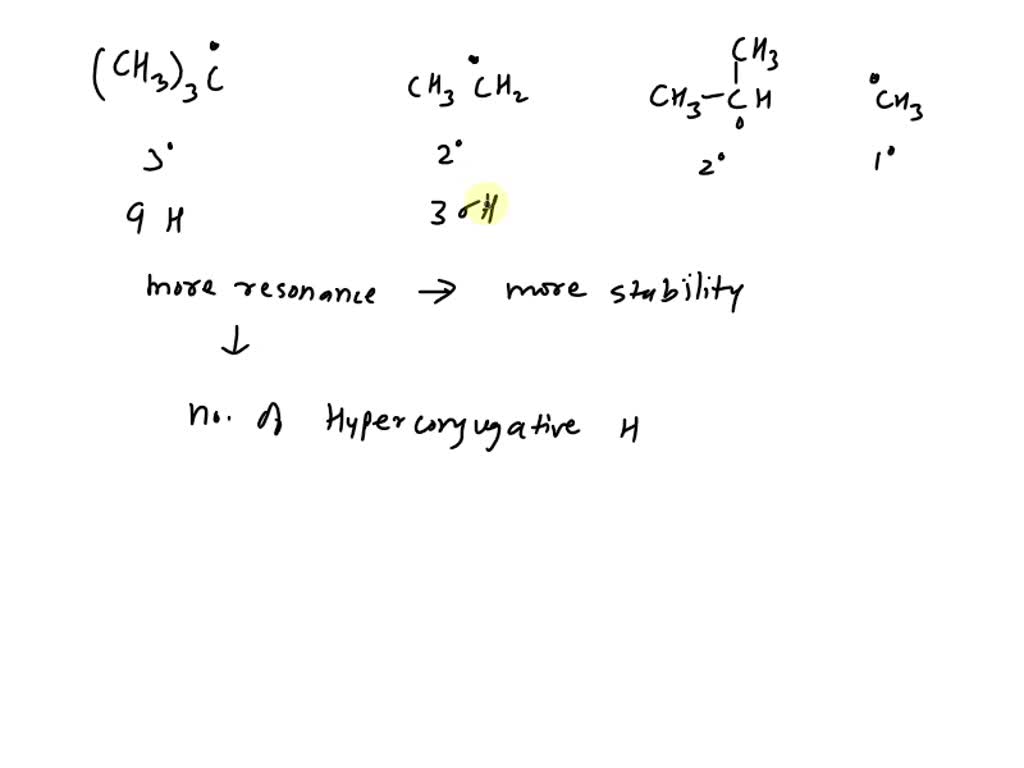 (CH₃)₃Ċ CH₃ĊH₂ CH₃-CH ĊH₃
CH₃
3° 2° 2° 1°
9 H 3 αH
more resonance → more stability
↓
no. of Hyperconjugative H